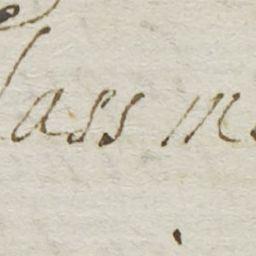 lass m